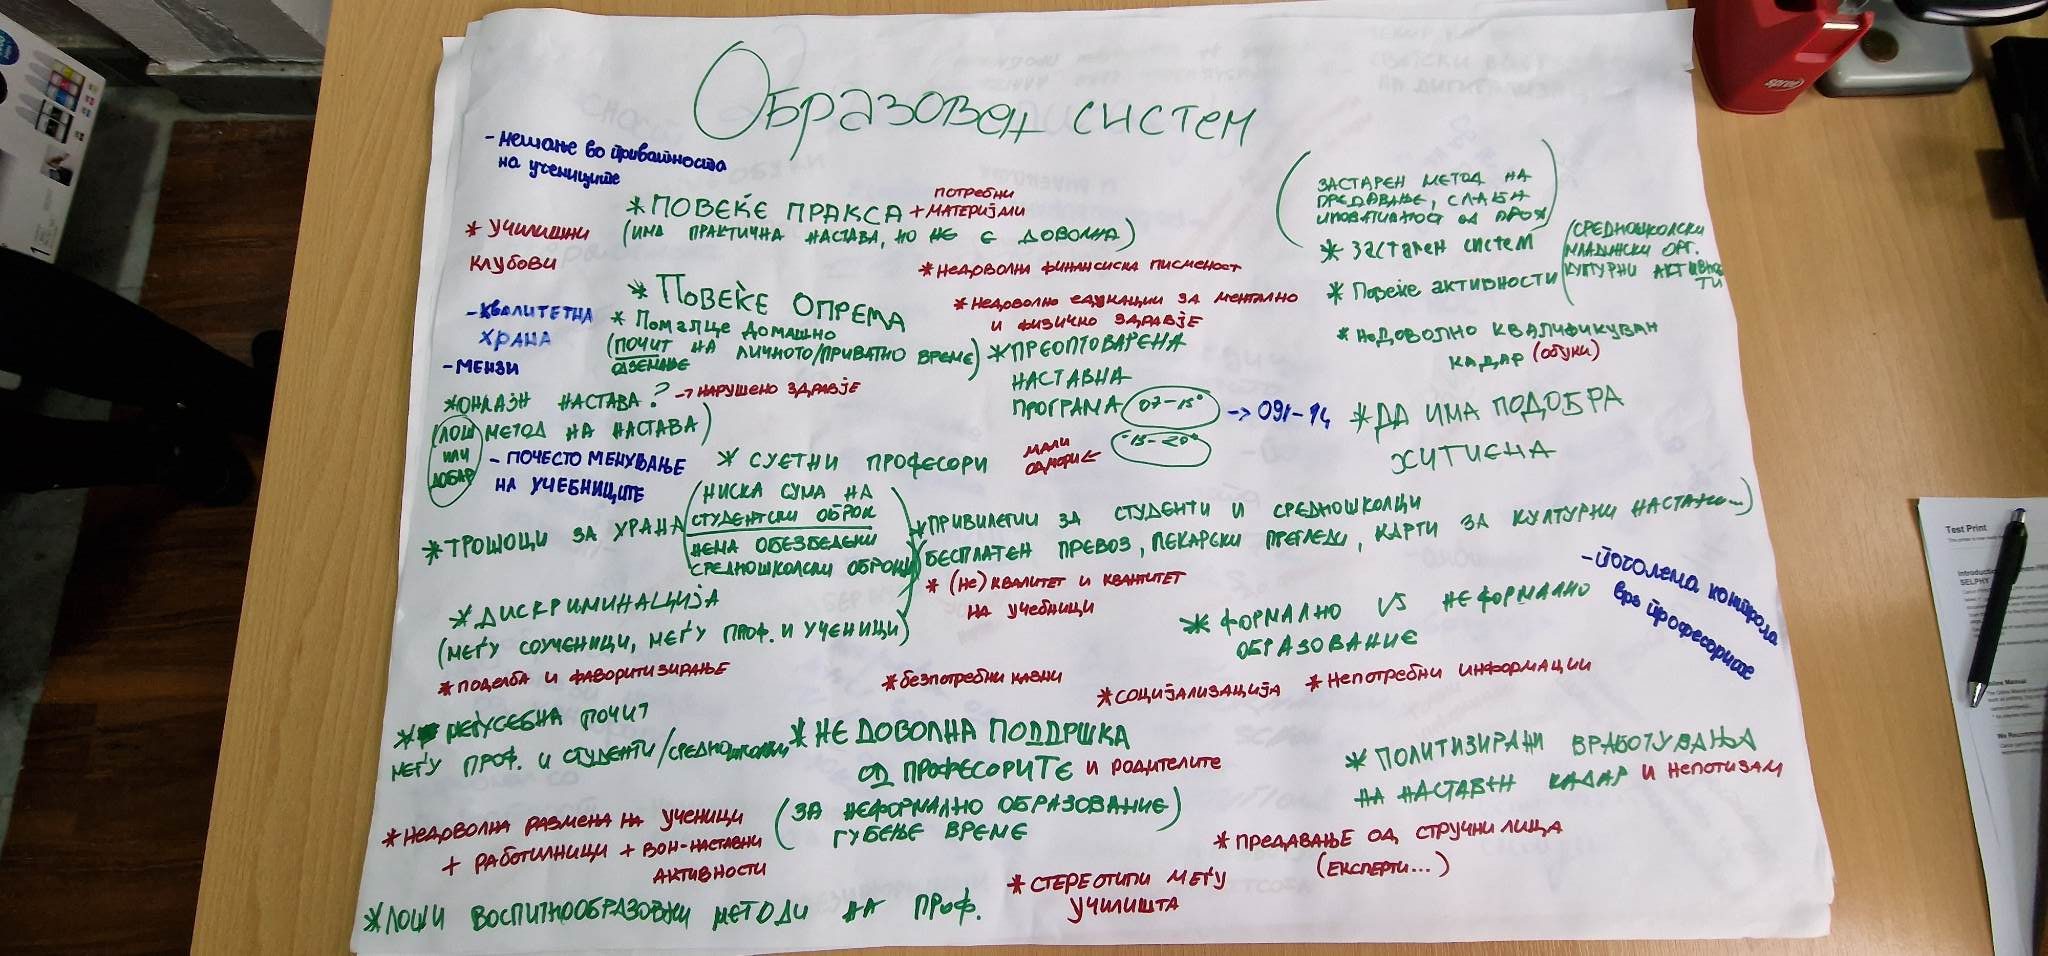 Образовен систем
- мешање во приватноста
на учениците
* УЧИЛИШНИ
КЛУБОВИ
* ПОВЕЌЕ ПРАКСА + ПОТРЕБНИ
МАТЕРИЈАЛИ
(ИМА ПРАКТИЧНА НАСТАВА, НО НЕ Е ДОВОЛНА)
(ЗАСТАРЕН МЕТОД НА
ПРЕДАВАЊЕ, СЛАБА
ИНОВАТИВНОСТ ОД ПРОФ)
* Застарен систем
* НЕДОВОЛНА ФИНАНСИСКА ПИСМЕНОСТ
* Повеќе активности
(СРЕДНОШКОЛСКИ
МЛАДИНСКИ ОРГ.
КУЛТУРНИ АКТИВНОС
ТИ
- КВАЛИТЕТНА
ХРАНА
- МЕНЗИ
* ПОВЕЌЕ ОПРЕМА
* НЕДОВОЛНО ЕДУКАЦИИ ЗА МЕНТАЛНО
И ФИЗИЧКО ЗДРАВЈЕ
* Помалце домашно
(ПОЧИТ НА ЛИЧНОТО/ПРИВАТНО ВРЕМЕ)
ОДЗЕМАЊЕ
* НЕДОВОЛНО КВАЛИФИКУВАН
КАДАР (обуки)
* ПРЕОПТОВАРЕНА
НАСТАВНА
ПРОГРАМА
07-15
13-20
МАЛИ
ОДМОРИ ←
* ОНЛАЈН НАСТАВА? → НАРУШЕНО ЗДРАВЈЕ
(ЛОШ МЕТОД НА НАСТАВА)
ИЛИ
ДОБАР
* ДА ИМА ПОДОБРА
ХИГИЕНА
- ПОЧЕСТО МЕНУВАЊЕ
НА УЧЕБНИЦИТЕ
* СУЕТНИ ПРОФЕСОРИ
* ТРОШОЦИ ЗА ХРАНА
(НИСКА СУМА НА
СТУДЕНТСКИ ОБРОК
НЕМА ОБЕЗБЕДЕНИ
СРЕДНОШКОЛСКИ ОБРОЦИ)
* ПРИВИЛЕГИИ ЗА СТУДЕНТИ И СРЕДНОШКОЛЦИ
(БЕСПЛАТЕН ПРЕВОЗ, ЛЕКАРСКИ ПРЕГЛЕДИ, КАРТИ ЗА КУЛТУРНИ НАСТАНИ...)
* (НЕ) КВАЛИТЕТ И КВАНТИТЕТ
НА УЧЕБНИЦИ
- поголема контрола
врз професорите
* ДИСКРИМИНАЦИЈА
(МЕЃУ СОУЧЕНИЦИ, МЕЃУ ПРОФ. И УЧЕНИЦИ)
* ФОРМАЛНО VS НЕФОРМАЛНО
ОБРАЗОВАНИЕ
* ПОДЕЛБА И ФАВОРИТИЗИРАЊЕ
* БЕЗПОТРЕБНИ КАЗНИ
* СОЦИЈАЛИЗАЦИЈА
* НЕПОТРЕБНИ ИНФОРМАЦИИ
* МЕЃУСЕБНА ПОЧИТ
МЕЃУ ПРОФ. И СТУДЕНТИ/СРЕДНОШКОЛЦИ
* НЕДОВОЛНА ПОДДРШКА
ОД ПРОФЕСОРИТЕ И РОДИТЕЛИТЕ
(ЗА НЕФОРМАЛНО ОБРАЗОВАНИЕ)
ГУБЕЊЕ ВРЕМЕ
* ПОЛИТИЗИРАНИ ВРАБОТУВАЊА
НА НАСТАВЕН КАДАР И НЕПОТИЗАМ
* НЕДОВОЛНА РАЗМЕНА НА УЧЕНИЦИ
+ РАБОТИЛНИЦИ + ВОН-НАСТАВНИ
АКТИВНОСТИ
* ПРЕДАВАЊЕ ОД СТРУЧНИ ЛИЦА
(ЕКСПЕРТИ...)
* СТЕРЕОТИПИ МЕЃУ
УЧИЛИШТА
* ЛОШИ ВОСПИТНООБРАЗОВНИ МЕТОДИ НА ПРОФ.
Test Print
SELPHY